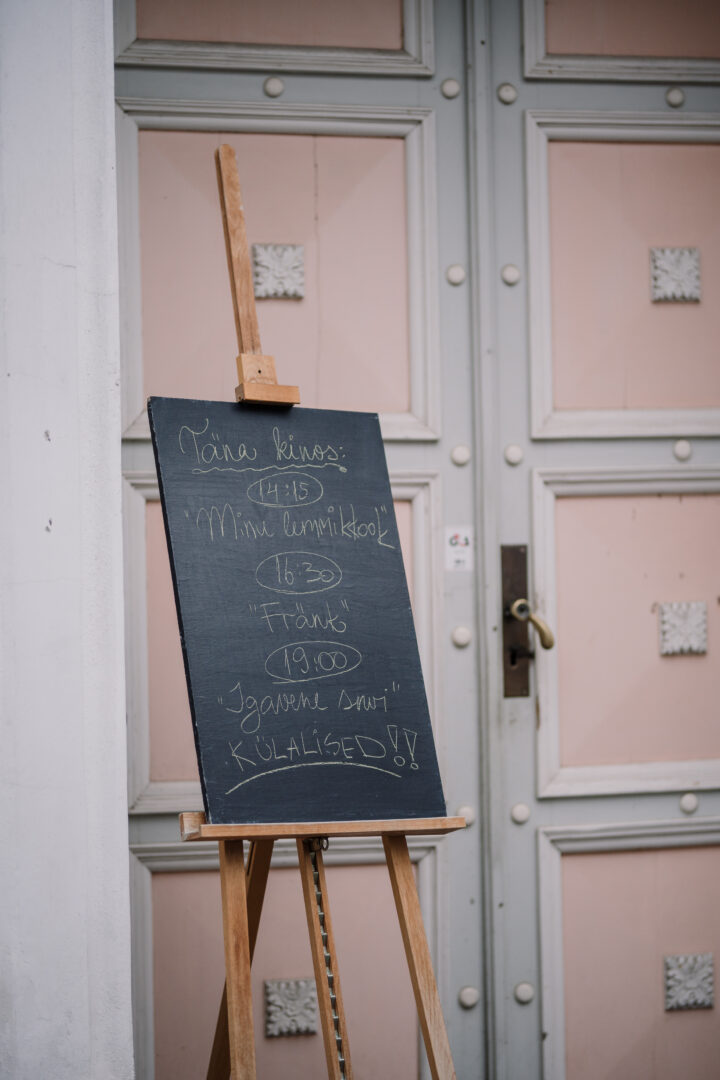 Täna kinos:
14:15
"Minu lemmiktool"
16:30
"Fränk"
19:00
"Igavene suvi"
KÜLALISED!!